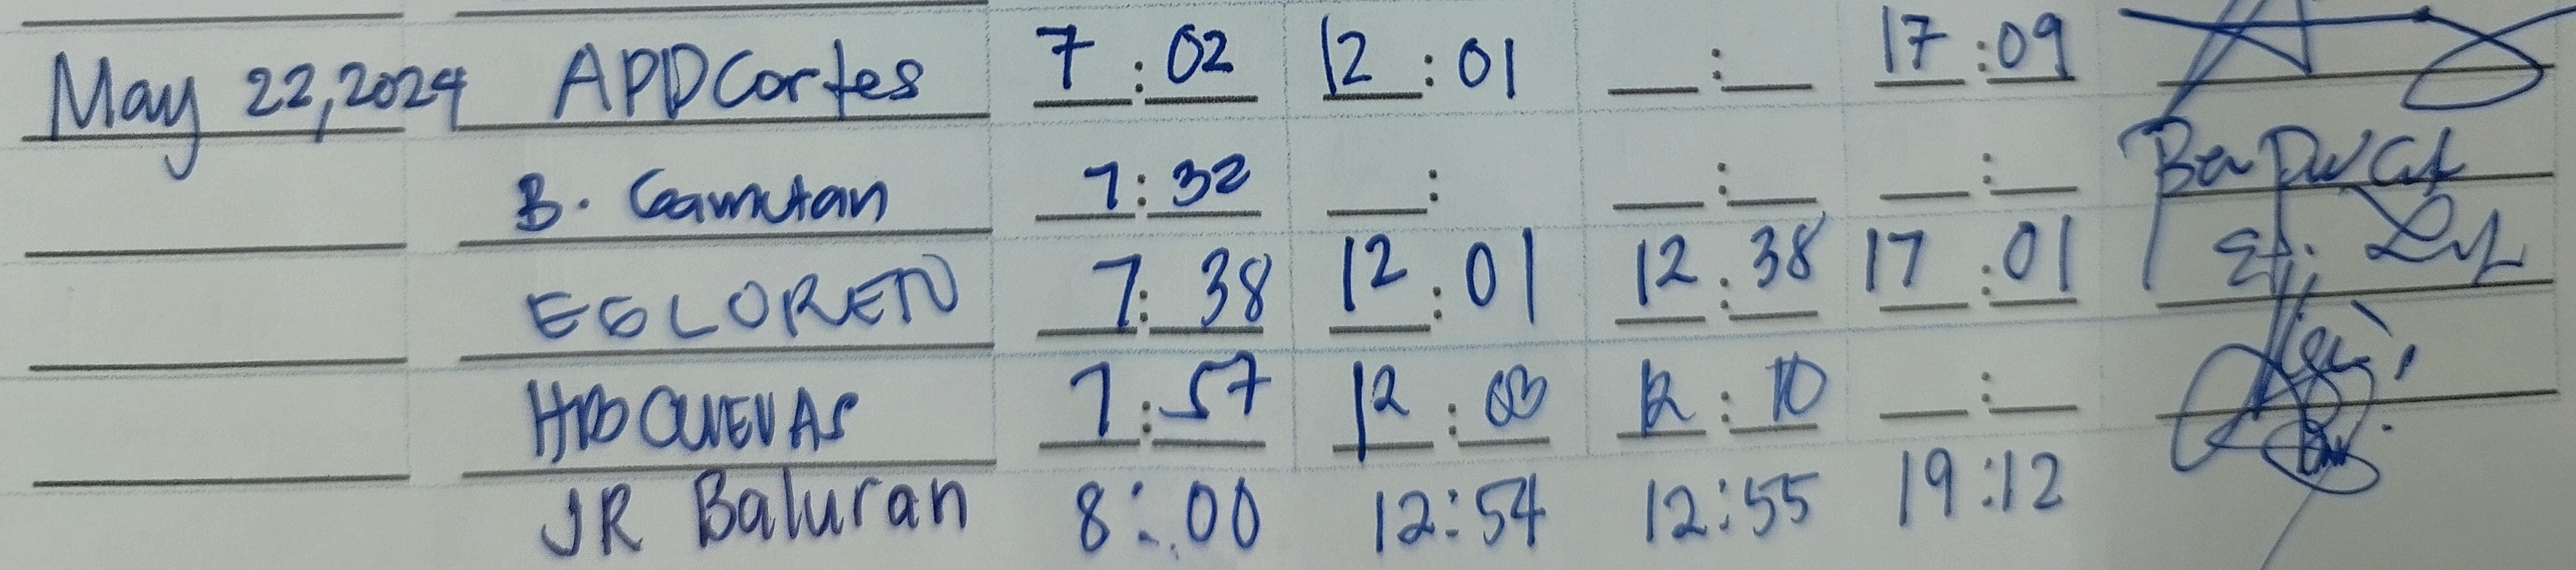 May 22,2024 APDCortes 7:02 12:01 __:__ 17:09
B. Gamutan 7:32 __: __:__ __:__
EGLOREN 7:38 12:01 12:38 17:01
HDOCUEVAS 7:57 12:03 12:10 __:__
JR Baluran 8:00 12:54 12:55 19:12